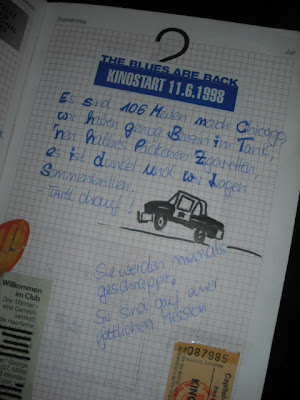 Donnerstag
Juli
THE BLUES ARE BACK
KINOSTART 11.6.1998
Es sind 106 Meilen nach Chicago,
wir haben genug Benzin im Tank,
'nen halbes Päckchen Zigaretten,
es ist dunkel und wir tragen
Sonnenbrillen.
Tritt drauf!
Sie werden niemals
geschnappt,
Sie sind auf einer
göttlichen Mission
Willkommen
im Club
087985
Capitol
KINO